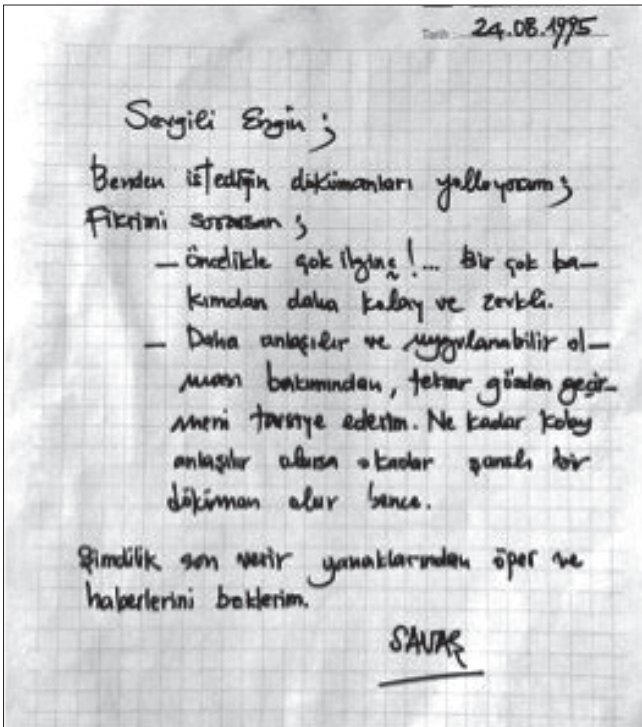 Tarih 24.08.1995
Sevgili Ergin ;
Benden istediğin dökümanları yolluyorum ;
Fikrimi sorarsan ;
— Öncelikle çok ilginç !... Bir çok ba—
kımdan daha kolay ve zevkli.
— Daha anlaşılır ve uygulanabilir ol—
ması bakımından, tekrar gözden geçir—
meni tavsiye ederim. Ne kadar kolay
anlaşılır olursa o kadar şanslı bir
döküman olur bence.
Şimdilik son verir yanaklarından öper ve
haberlerini beklerim.
SAVAŞ